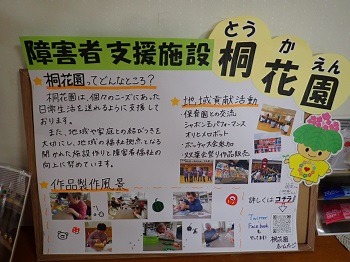 障害者支援施設
とう か えん
桐花園
桐花園ってどんなところ?
桐花園は、個々のニーズにあった
日常生活を送れるように支援して
おります。
また、地域や家庭との結びつきを
大切にし、地域の福祉拠点となる
開かれた施設作りと障害者福祉の
向上に努めています。
地域貢献活動
・保育園との交流
・シャボン玉パフォーマンス
・オリヒメロボット
・ボッチャ大会参加
・収穫祭など作品販売
作品製作風景
詳しくはコチラ!
Twitter
Facebookも
やってます!
桐花園
ホームページ